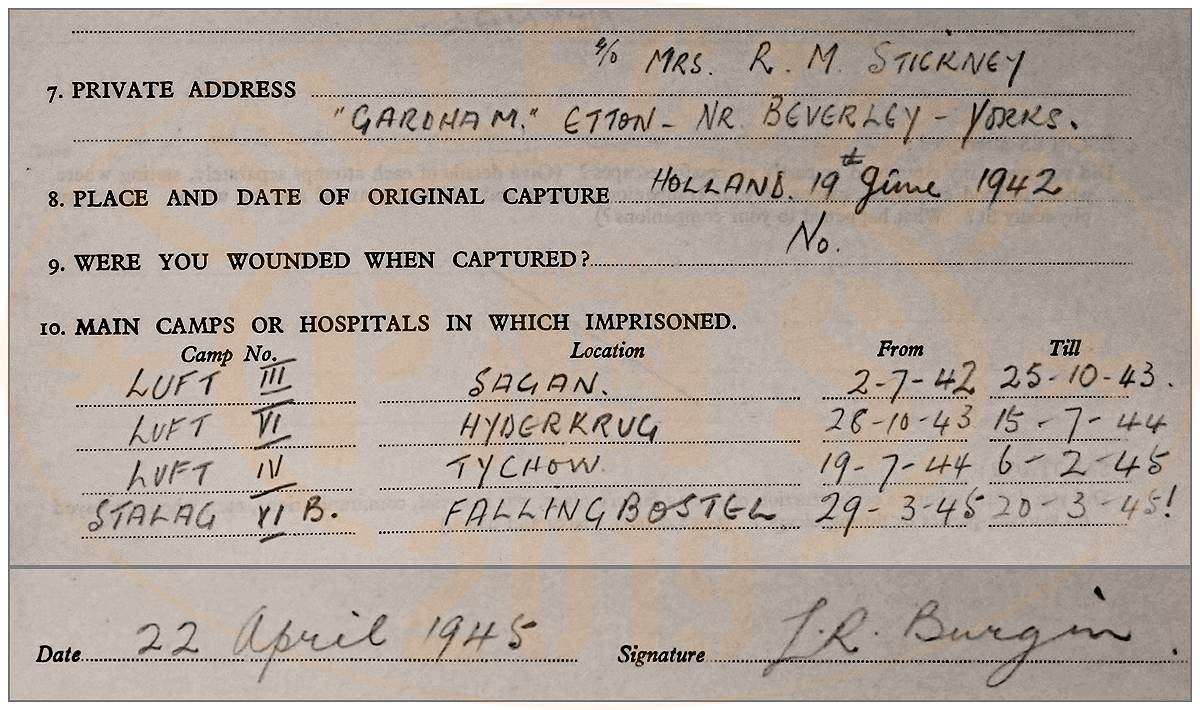 c/o MRS. R. M. STICKNEY
7. PRIVATE ADDRESS
"GARDHAM." ETTON - NR. BEVERLEY - YORKS.
8. PLACE AND DATE OF ORIGINAL CAPTURE HOLLAND. 19th June 1942
9. WERE YOU WOUNDED WHEN CAPTURED? No.
10. MAIN CAMPS OR HOSPITALS IN WHICH IMPRISONED.
Camp No. Location From Till
LUFT III SAGAN. 2-7-42 25-10-43.
LUFT VI HYDERKRUG 28-10-43 15-7-44
LUFT IV TYCHOW. 19-7-44 6-2-45
STALAG XI B. FALLINGBOSTEL 29-3-45 20-3-45!
Date 22 April 1945 Signature J.R. Burgin